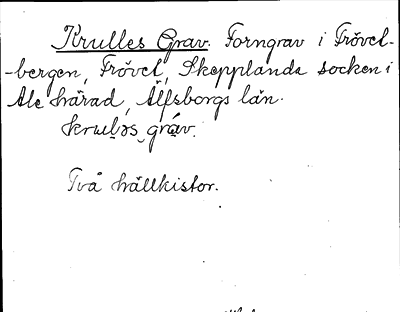 Krulles Grav. Forngrav i Frövet-
-bergen, Frövet, Skepplanda socken i
Ale härad, Älfsborgs län.
kruləs grav.
Två hällkistor.